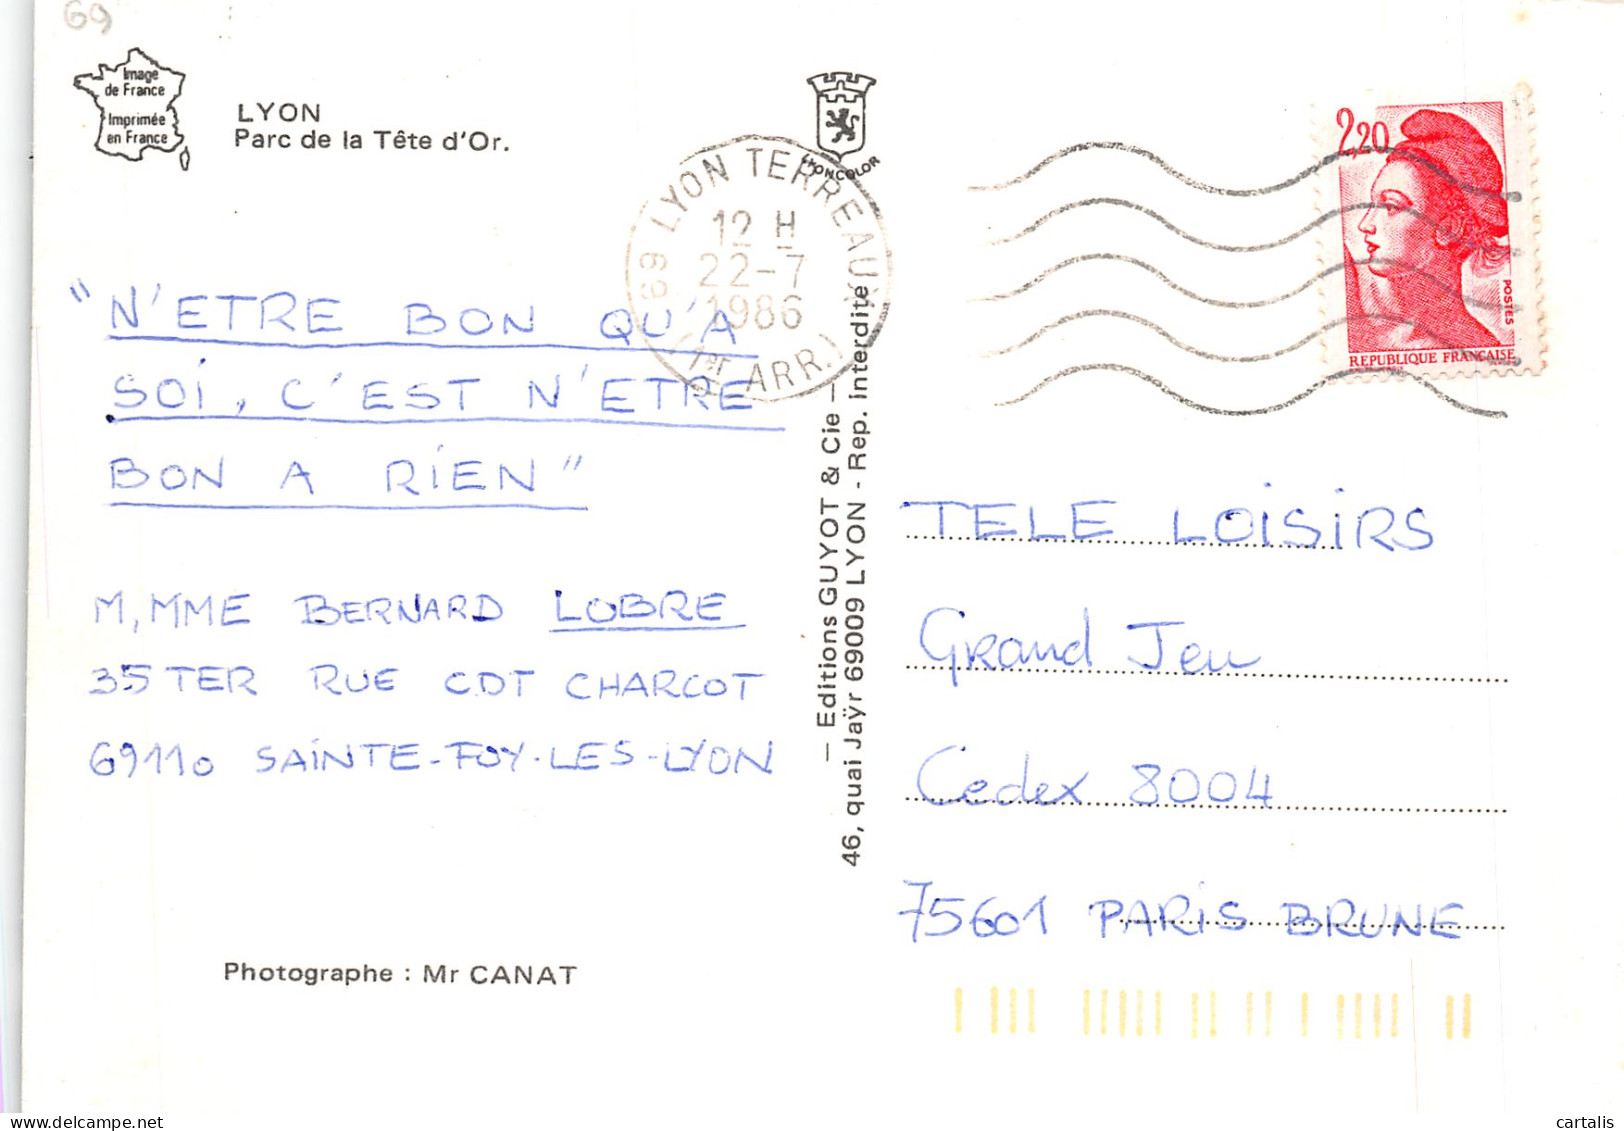 69
Image
de France
Imprimée
en France
LYON
Parc de la Tête d'Or.
LYONCOLOR
69 LYON TERREAUX
12 H
22-7
1986
(1er ARR.)
2,20
POSTES
REPUBLIQUE FRANÇAISE
"N'ETRE BON QU'A
SOI, C'EST N'ETRE
BON A RIEN"
M, MME BERNARD LOBRE
35 TER RUE CDT CHARCOT
69110 SAINTE-FOY-LES-LYON
Photographe : Mr CANAT
— Editions GUYOT & Cie —
46, quai Jaÿr 69009 LYON - Rep. interdite
TELE LOISIRS
Grand Jeu
Cedex 8004
75601 PARIS BRUNE
cartalis